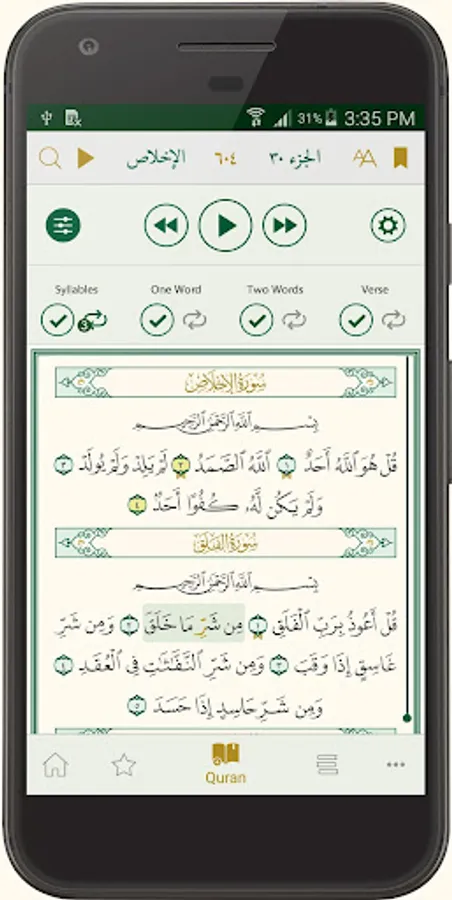 31% 3:35 PM
الإخلاص ٦٠٤ الجزء ٣٠ AA
Syllables One Word Two Words Verse
3
سُورَةُ الإِخْلَاصِ
بِسْمِ اللَّهِ الرَّحْمَٰنِ الرَّحِيمِ
قُلْ هُوَ اللَّهُ أَحَدٌ ١ اللَّهُ الصَّمَدُ ٢ لَمْ يَلِدْ وَلَمْ يُولَدْ ٣
وَلَمْ يَكُن لَّهُۥ كُفُوًا أَحَدٌ ٤
سُورَةُ الفَلَقِ
بِسْمِ اللَّهِ الرَّحْمَٰنِ الرَّحِيمِ
قُلْ أَعُوذُ بِرَبِّ الْفَلَقِ ١ مِن شَرِّ مَا خَلَقَ ٢ وَمِن شَرِّ
غَاسِقٍ إِذَا وَقَبَ ٣ وَمِن شَرِّ النَّفَّٰثَٰتِ فِي الْعُقَدِ ٤
وَمِن شَرِّ حَاسِدٍ إِذَا حَسَدَ ٥
Quran